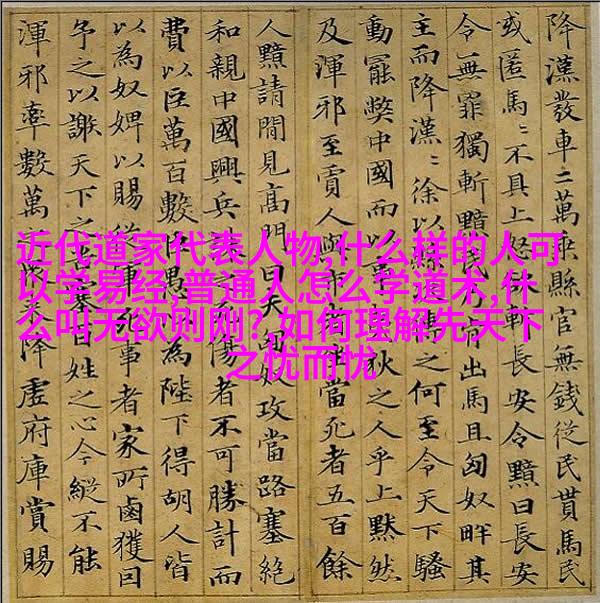 降漢發車二萬乘縣官無錢從民貰馬民
或匿馬〻不具上怒斬長安令黯曰長安
令無罪獨斬黯民出馬且匈奴畔其
主而降漢〻徐以縣之何至令天下騷
動罷弊中國而以狄之人乎上默然
及渾邪至賈人與市當死者五百餘
人黯請間見高門曰夫匈奴攻當路塞絕
和親中國興兵者不可勝計而
費以巨萬百數愚為陛下得胡人皆
以為奴婢以賜從軍事者家所鹵獲因
予之以謝天下之塞百姓之心今縱不能
渾邪率數萬來降虛府庫賞賜
近代道家代表人物,什么样的人可
以学易经,普通人怎么学道术,什
么叫无欲则刚？如何理解先天下
之忧而忧